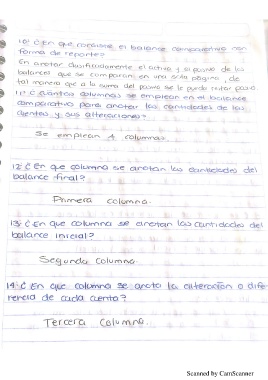 10 ¿En que consiste el balance comparativo con
forma de reporte?
En anotar clasificadamente el activo y el pasivo de los
balances que se comparan en una sola página, de
tal manera que a la suma del activo se le pueda restar pasivo
11 ¿Cuántas columnas se emplean en el balance
comparativo para anotar las cantidades de las
cuentas y sus alteraciones?
Se emplean 4 columnas.
12 ¿En que columna se anotan las cantidades del
balance final?
Primera columna.
13 ¿En que columna se anotan las cantidades del
balance inicial?
Segunda columna.
14 ¿En que columna se anota la alteración o dife
rencia de cada cuenta?
Tercera columna.
Scanned by CamScanner